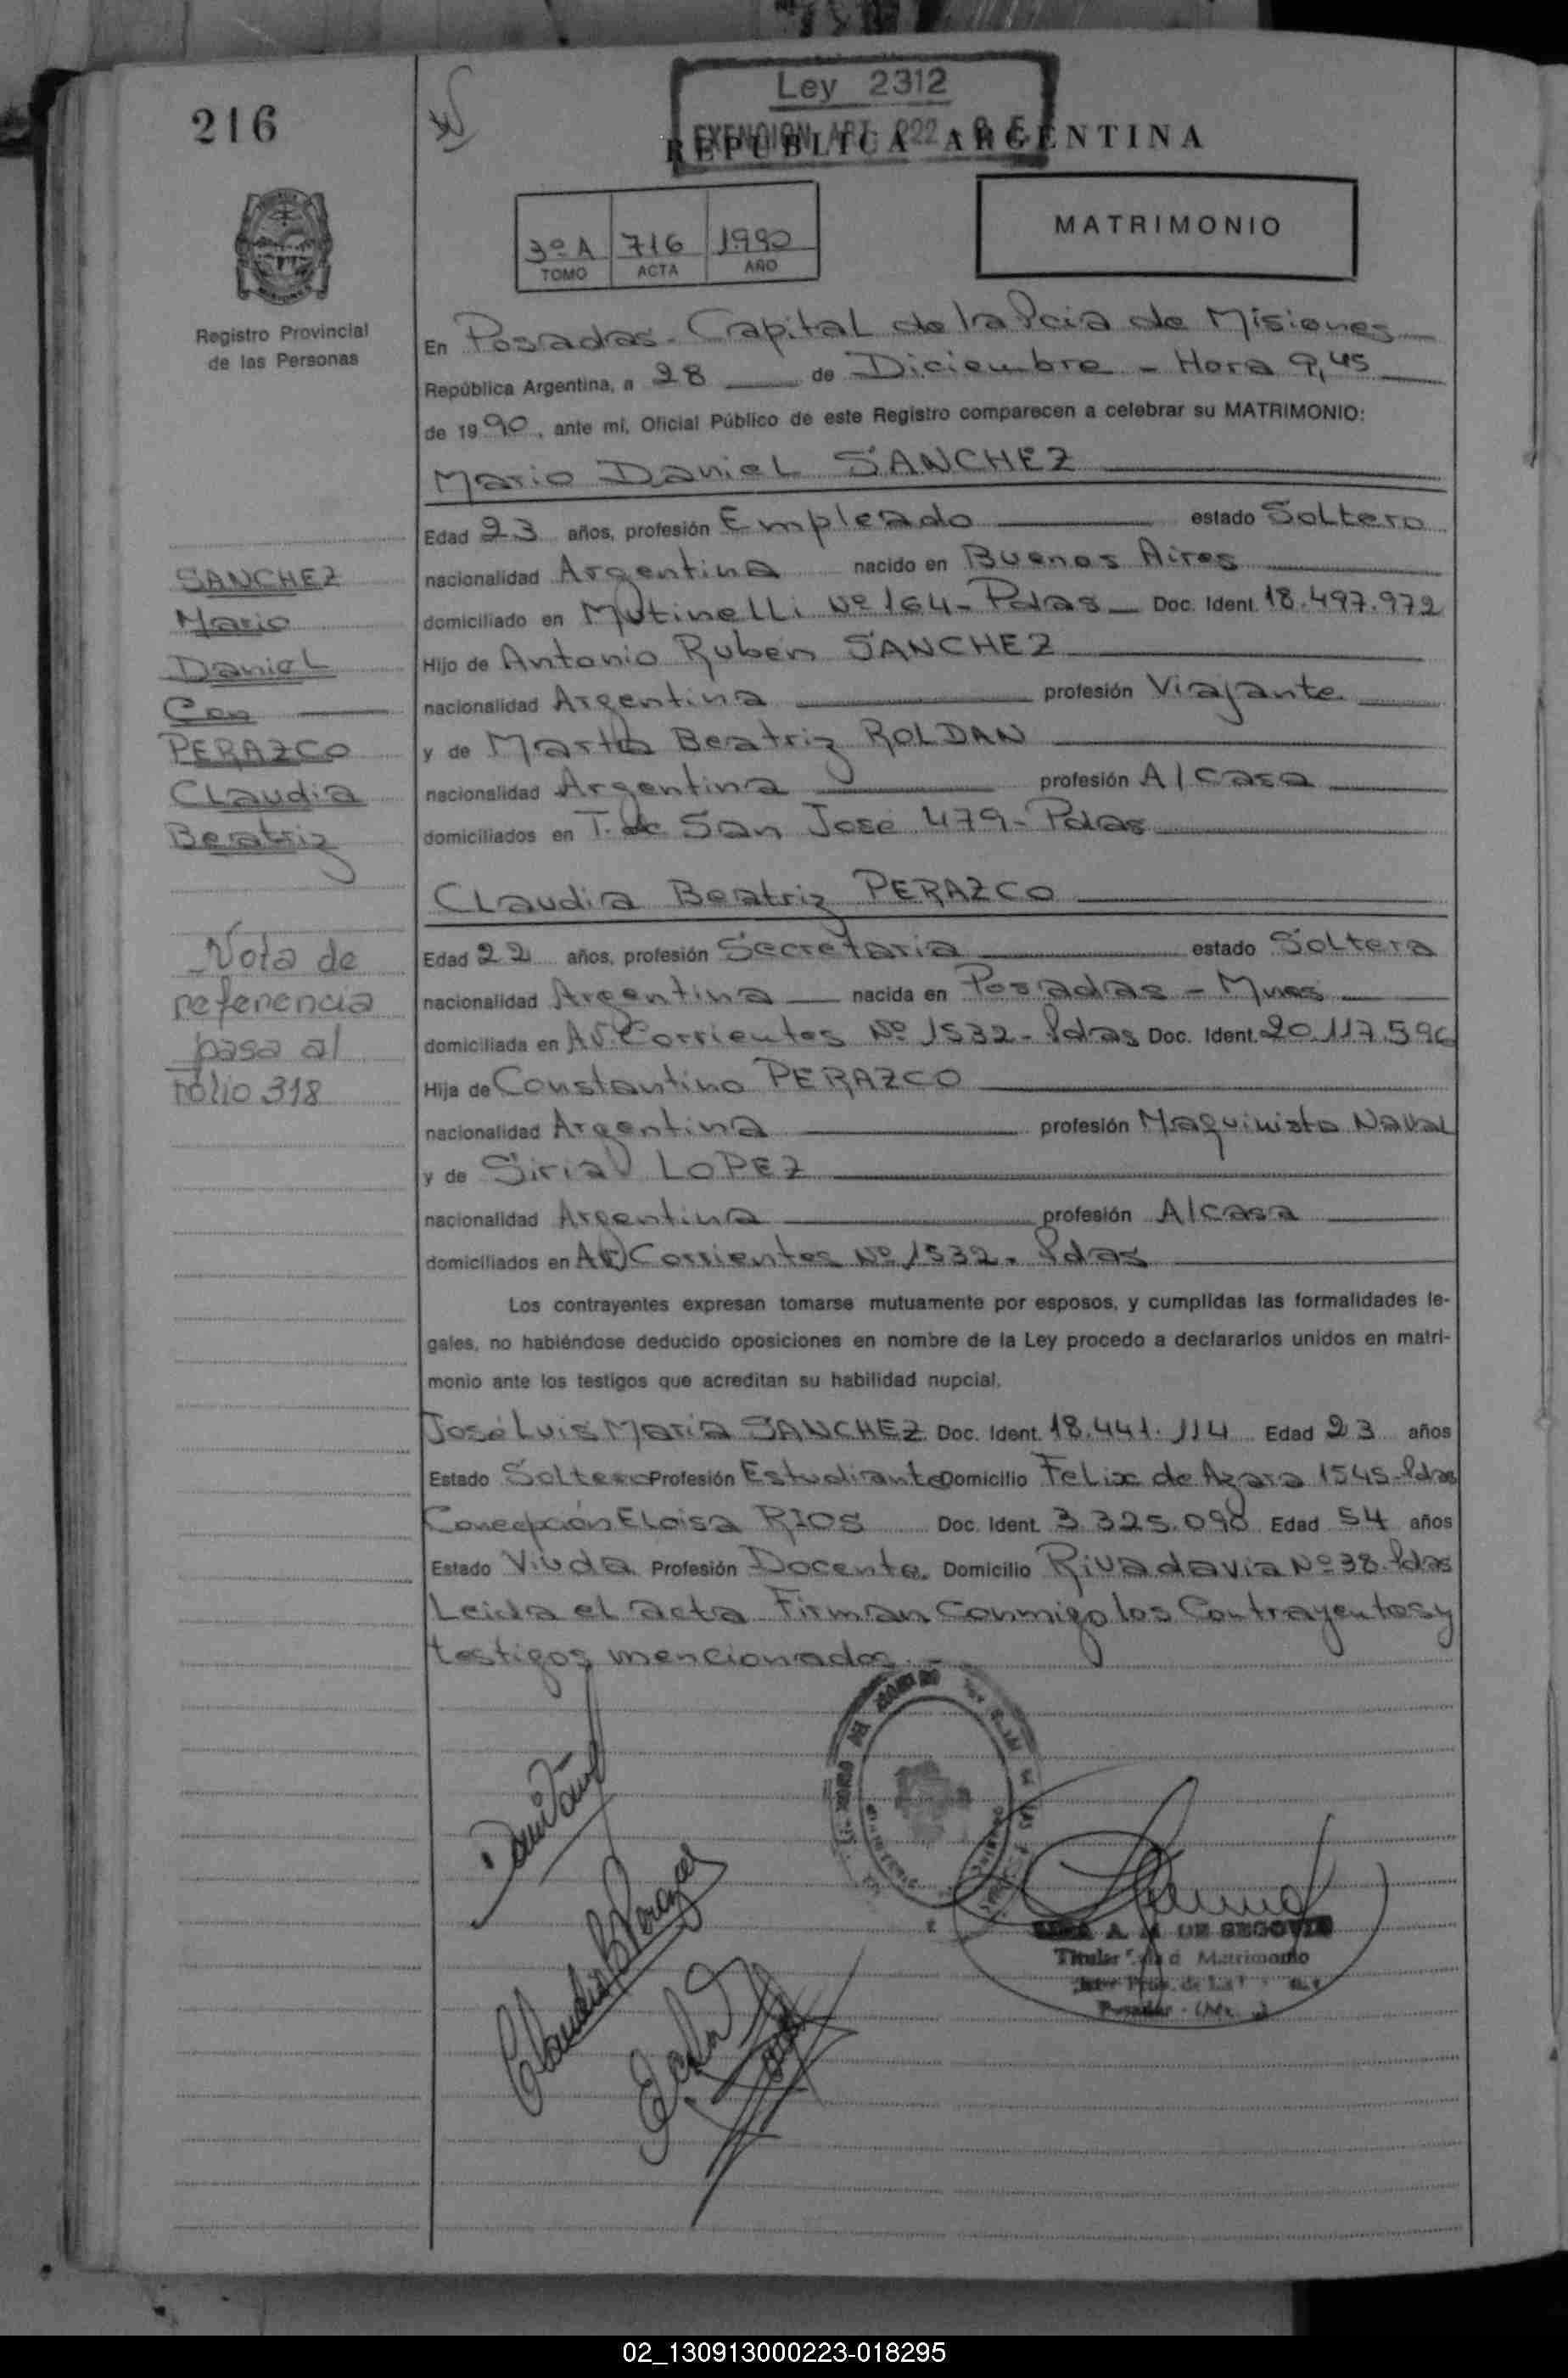 216
Ley 2312
EXENCION ART. 222
REPUBLICA ARGENTINA
3º A 716 1990
TOMO ACTA AÑO
MATRIMONIO
Registro Provincial
de las Personas
En Posadas - Capital de la Pcia de Misiones
República Argentina, a 28 de Diciembre - Hora 9,45
de 1990, ante mi, Oficial Público de este Registro comparecen a celebrar su MATRIMONIO:
Mario Daniel SANCHEZ
Edad 23 años, profesión Empleado estado Soltero
nacionalidad Argentina nacido en Buenos Aires
domiciliado en Mutinelli Nº 164 - Pdas - Doc. Ident. 18.497.972
Hijo de Antonio Ruben SANCHEZ
nacionalidad Argentina profesión Viajante
y de Marta Beatriz ROLDAN
nacionalidad Argentina profesión A/casa
domiciliados en T. de San José 479 - Pdas
SANCHEZ
Mario
Daniel
Con
PERAZCO
Claudia
Beatriz
Claudia Beatriz PERAZCO
Edad 22 años, profesión Secretaria estado Soltera
nacionalidad Argentina nacida en Posadas - Mnes
domiciliada en Av. Corrientes Nº 1532 - Pdas Doc. Ident. 20.117.596
Hija de Constantino PERAZCO
nacionalidad Argentina profesión Maquinista Naval
y de Sirial LOPEZ
nacionalidad Argentina profesión A/casa
domiciliados en Av Corrientes Nº 1532 - Pdas
Nota de
referencia
pasa al
folio 318
Los contrayentes expresan tomarse mutuamente por esposos, y cumplidas las formalidades le-
gales, no habiéndose deducido oposiciones en nombre de la Ley procedo a declararlos unidos en matri-
monio ante los testigos que acreditan su habilidad nupcial.
José Luis Maria SANCHEZ Doc. Ident. 18.441.114 Edad 23 años
Estado Soltero Profesión Estudiante Domicilio Felix de Azara 1545 - Pdas
Concepción Eloisa RIOS Doc. Ident. 3.325.098 Edad 54 años
Estado Viuda Profesión Docente. Domicilio Rivadavia Nº 38 - Pdas
Leida el acta Firman conmigo los Contrayentes y
testigos mencionados. -
Claudia B Perazco
A. M DE SEGOVIA
Titular Matrimonio
Posadas
02_130913000223-018295